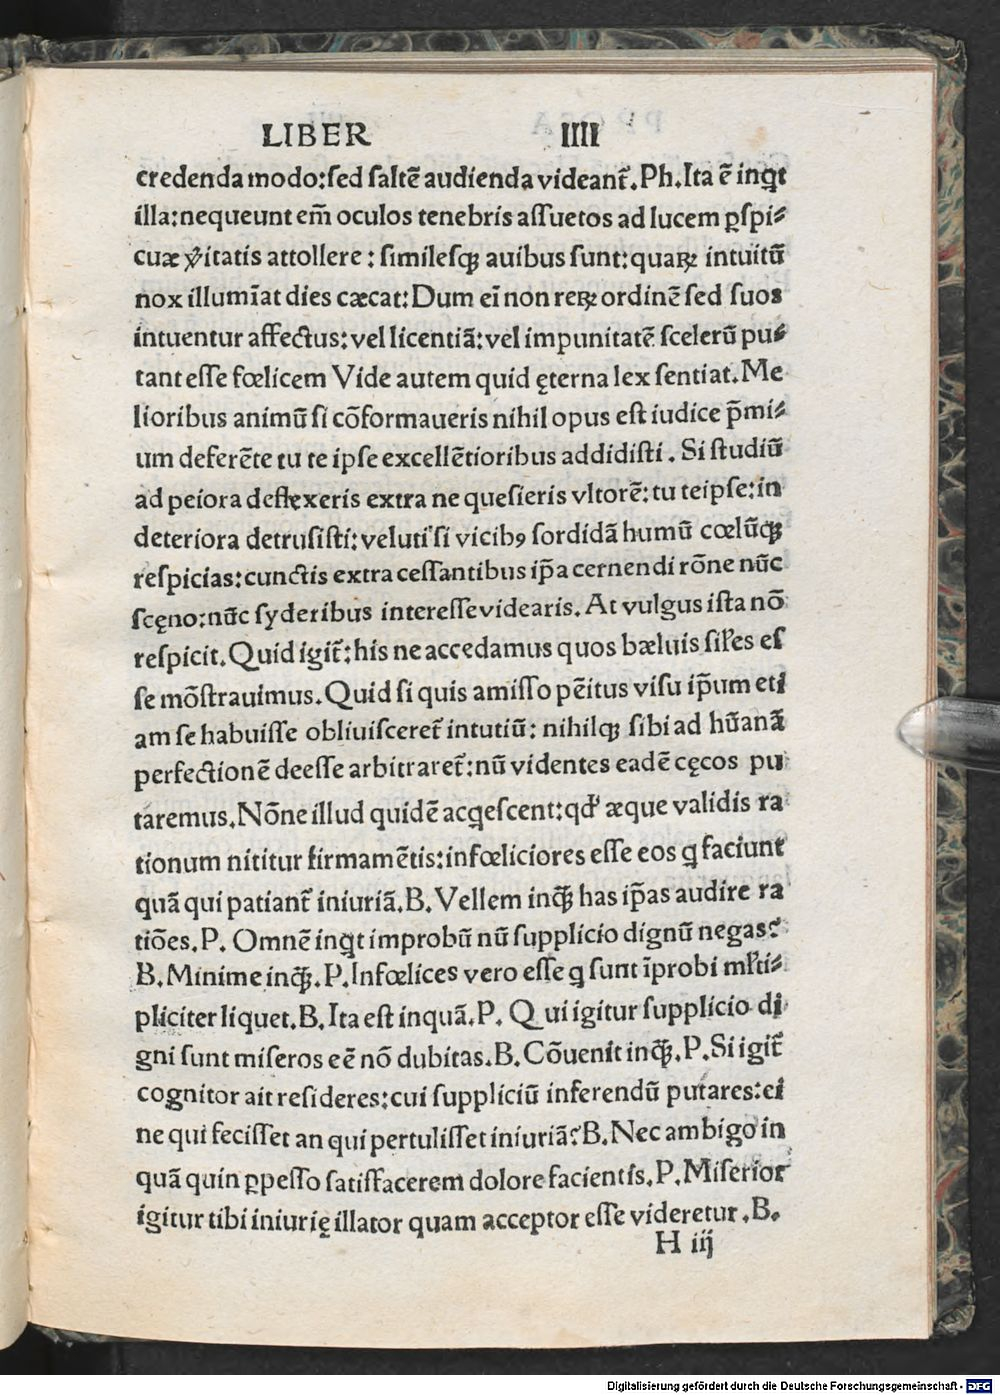 LIBER IIII
credenda modo:ſed ſaltē audienda videant̃.Ph.Ita ē inq̇t
illa:nequeunt em̃ oculos tenebris aſſuetos ad lucem ꝑſpi⸗
cuæ ꝟitatis attollere : ſimileſqꝫ auibus ſunt:quaꝝ intuitū
nox illumīat dies cæcat:Dum eī non reꝝ ordinē ſed ſuos
intuentur affectus:vel licentiã:vel impunitatē ſcelerū pu⸗
tant eſſe fœlicem Vide autem quid ęterna lex ſentiat.Me
lioribus animū ſi cõformaueris nihil opus eſt iudice p̃mi⸗
um deferēte tu te ipſe excellētioribus addidiſti . Si ſtudiū
ad peiora deflęxeris extra ne queſieris vltorē:tu teipſe:in
deteriora detruſiſti:veluti ſi vicibꝰ ſordidã humū cœlūqꝫ
reſpicias:cunctis extra ceſſantibus ip̃a cernendi rõne nūc
ſcęno:nūc ſyderibus intereſſe videaris.At vulgus iſta nõ
reſpicit.Quid igit̃:his ne accedamus quos bæluis ſil̃es eſ
ſe mõſtrauimus.Quid ſi quis amiſſo pēitus viſu ip̃um eti
am ſe habuiſſe obliuiſceret̃ intutiū: nihilqꝫ ſibi ad hūanã
perfectionē deeſſe arbitraret̃:nū videntes eadē cęcos pu
taremus.Nõne illud quidē acq̇eſcent:qd' æque validis ra
tionum nititur firmamētis:infœliciores eſſe eos q̇ faciunt
quã qui patiant̃ iniuriã.B.Vellem inq̃ꝫ has ip̃as audire ra
tiões.P. Omnē inq̇t improbū nū ſupplicio dignū negas?
B.Minime inq̃ꝫ.P.Infœlices vero eſſe q̇ ſunt īprobi ml̃ti⸗
pliciter liquet.B.Ita eſt inquã.P. Qui igitur ſupplicio di
gni ſunt miſeros eē nõ dubitas.B.Cõuenit inq̃ꝫ.P.Si igit̃
cognitor ait reſideres:cui ſuppliciū inferendū putares:ei
ne qui feciſſet an qui pertuliſſet iniuriã?B.Nec ambigo in
quã quin ꝑpeſſo ſatiſfacerem dolore facientis.P.Miſerior
igitur tibi iniurię illator quam acceptor eſſe videretur .B.
H iij
Digitalisierung gefördert durch die Deutsche Forschungsgemeinschaft - DFG